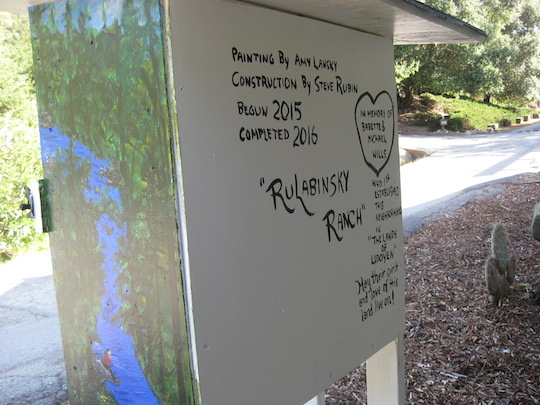 Painting By Amy Lansky
Construction By Steve Rubin
Begun 2015
Completed 2016
"RuLabinsky
Ranch"
IN MEMORY OF
BABETTE &
MICHAEL
WILLS
WHO 1ST
ESTABLISHED
THIS
NEIGHBORHOOD
IN
"THE LANDS
OF
May their spirit
and love of this
land live on!